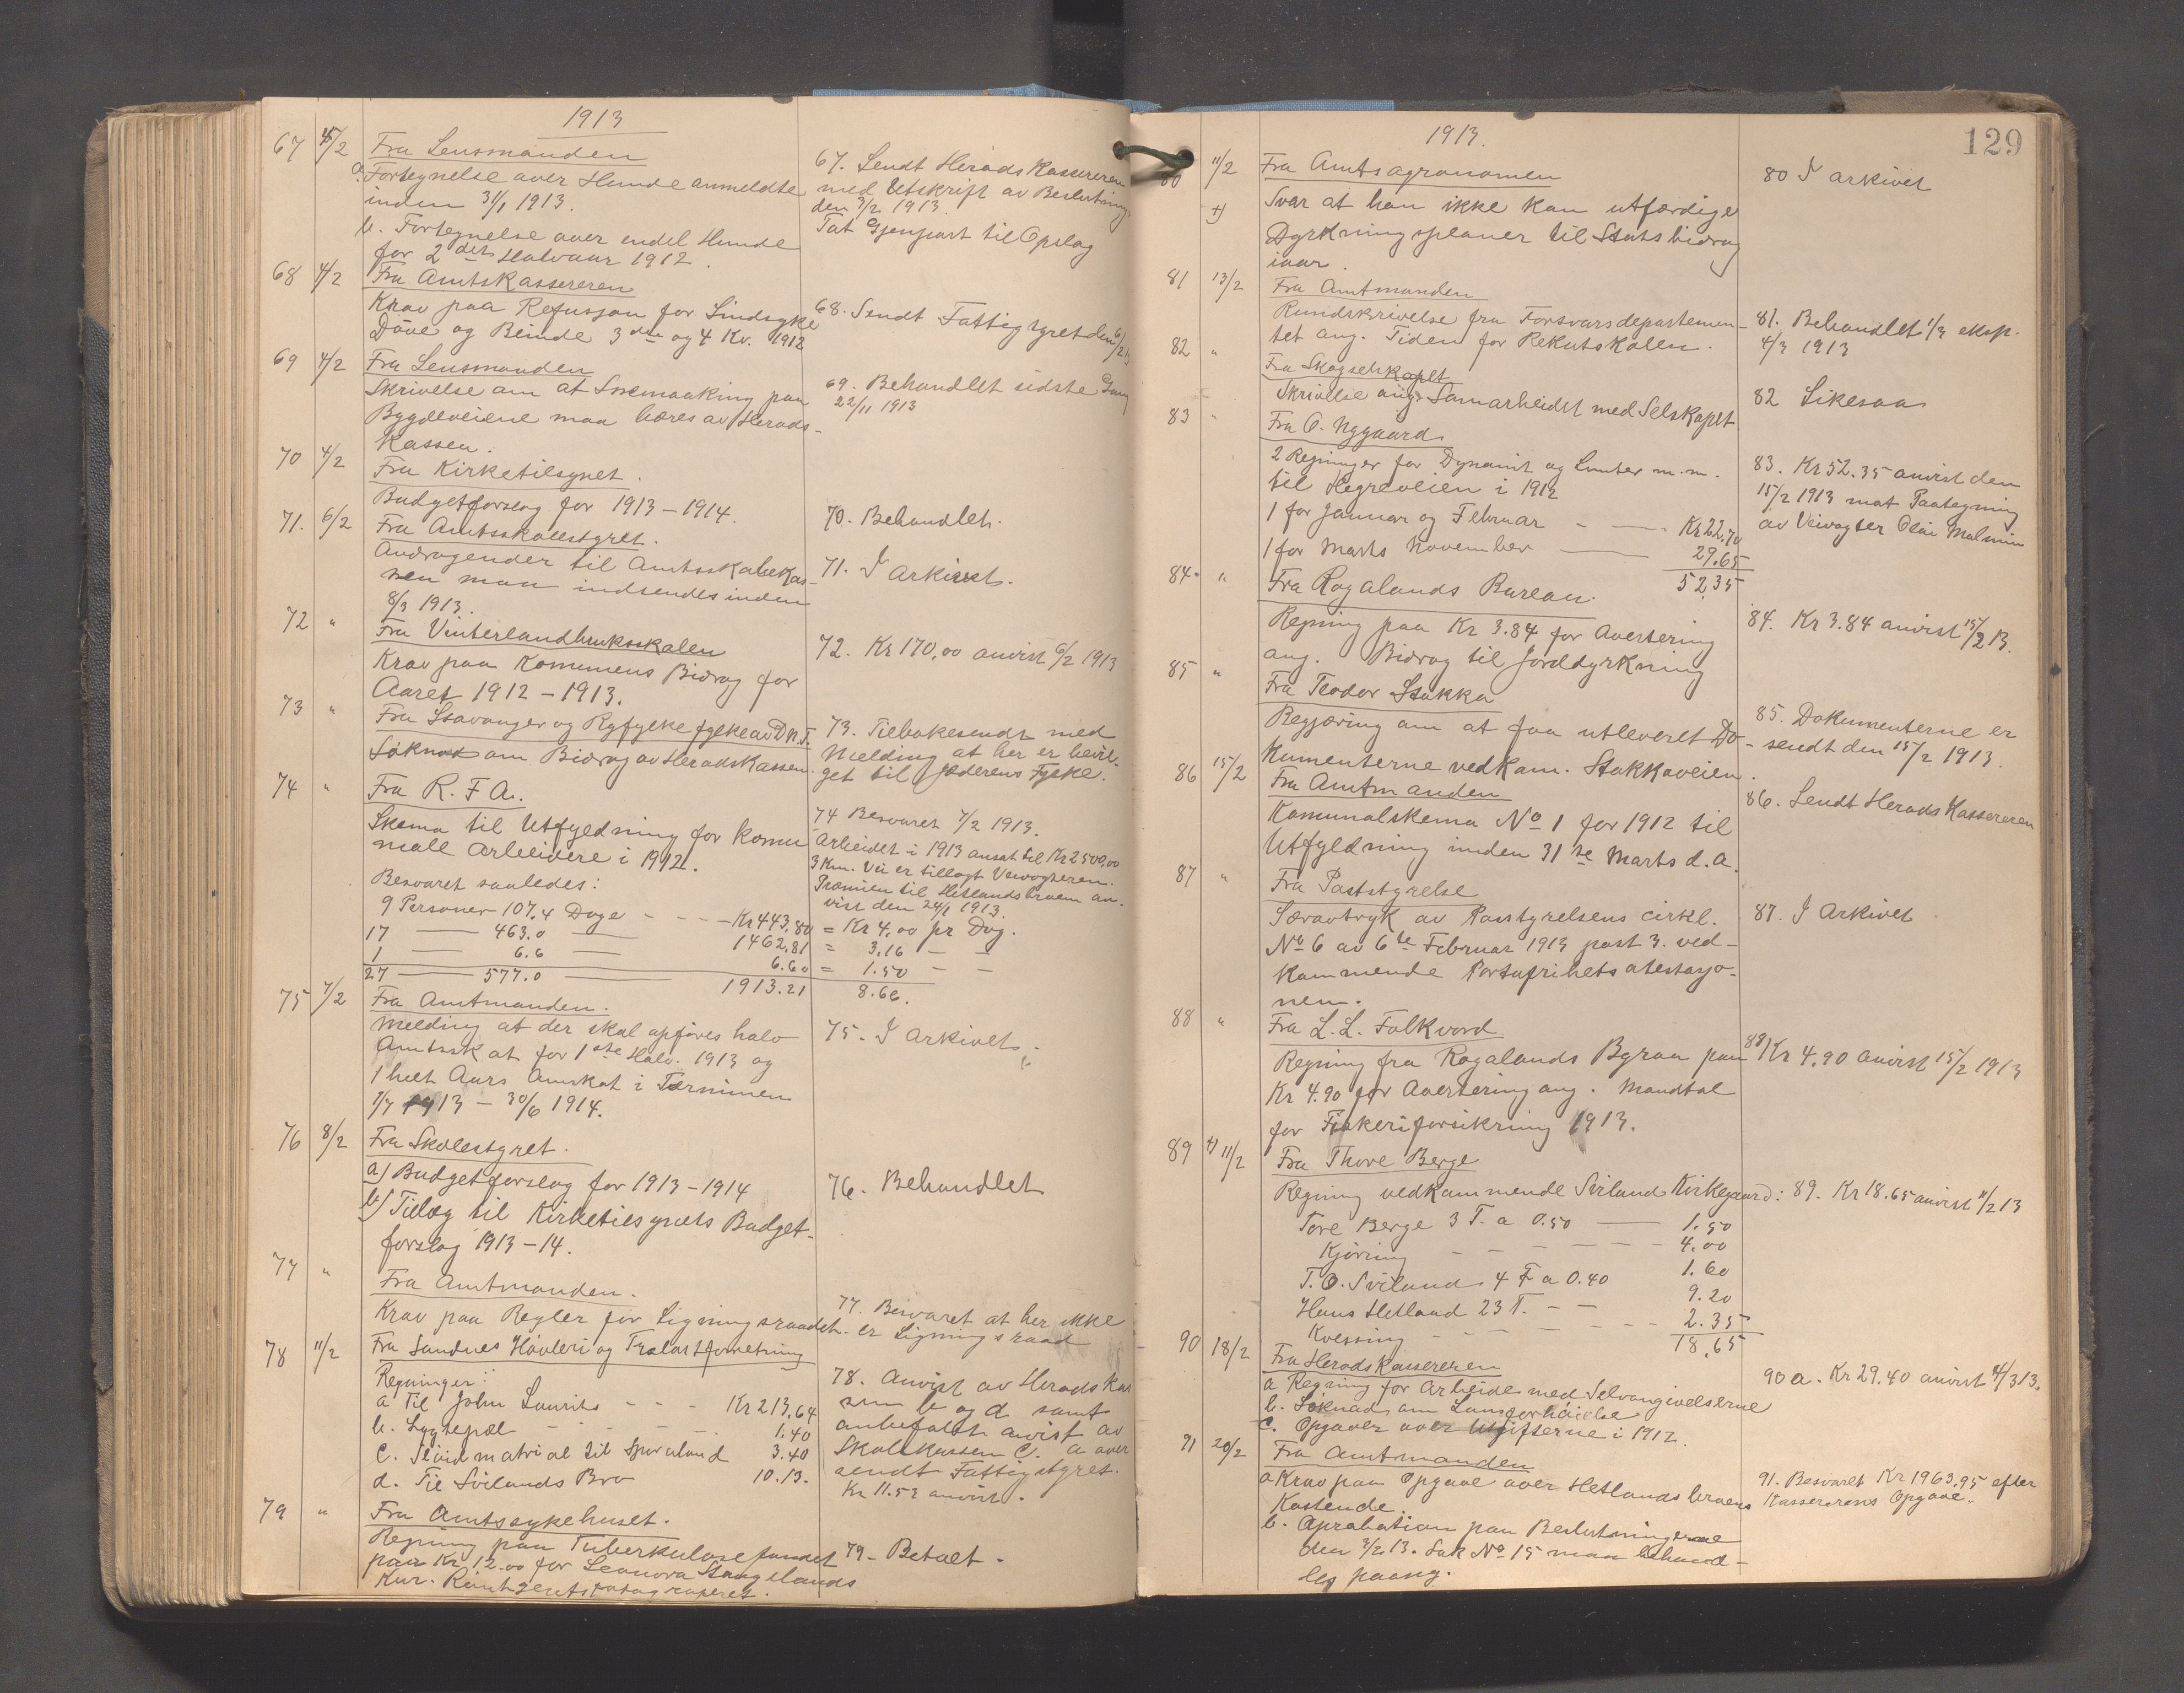 1913
67 4/2 Fra Lensmanden
a. Fortegnelse over Hunde anmeldte
inden 31/1 1913.
b. Fortegnelse over endel Hunde
for 2det Halvaar 1912.
67. Sendt Heradskassereren
med Utskrift av Beslutning
den 3/2 1913.
Tat Gjenpart til Opslag
68 4/2 Fra Amtskassereren
Krav paa Refusjon for Sindsyke
Døve og Blinde 3die og 4 Kv. 1912
68. Sendt Fattigstyret den 6/2 13
69 4/2 Fra Lensmanden
Skrivelse om at Snemaaking paa
Bygdeveiene maa bæres av Herads-
kassen.
69. Behandlet sidste Gang
22/11 1913
70 4/2 Fra Kirketilsynet.
Budgetforslag for 1913-1914.
70. Behandlet.
71. 6/2 Fra Amtsskolestyret.
Andragender til Amtsskolekas-
sen maa indsendes inden
8/3 1913.
71. I arkivet.
72 " Fra Vinterlandbruksskolen
Krav paa Komunens Bidrag for
Aaret 1912-1913.
72. Kr 170,00 anvist 6/2 1913
73 " Fra Stavanger og Ryfylke fylke av D.N.T.
Søknad om Bidrag av Heradskassen.
73. Tilbakesendt med
Melding at her er bevil-
get til Jæderens Fylke.
74 " Fra R. F. A.
Skema til Utfyldning for komu
nale Arbeidere i 1912.
Besvaret saaledes:
9 Personer 107,4 Dage - - - Kr 443,80 = Kr 4,00 pr Dag.
17 — 463.0 — 1462,81 = 3,16 — —
1 — 6.6 — 6.60 = 1.50 — —
27 — 577.0 — 1913.21 8.66.
74 Besvaret 7/2 1913.
Arbeidet i 1913 ansat til Kr 2500,00
3 Km. Vei er tillagt Veivogteren.
Præmien til Hetlandsbruen an-
vist den 24/1 1913.
75 7/2 Fra Amtmanden.
Melding at der skal opføres halv
Amtsskat for 1ste Halv. 1913 og
1 helt Aars Amskat i Terminen
1/7 1913 - 30/6 1914.
75. I arkivet.
76 8/2 Fra Skolestyret.
a) Budgetforslag for 1913-1914
b) Tillæg til Kirketilsynets Budget-
forslag 1913-14.
76. Behandlet
77 " Fra Amtmanden.
Krav paa Regler for Ligningsraadet.
77. Besvaret at her ikke
er Ligningsraad
78 11/2 Fra Sandnes Høvleri og Trælastforretning
Regninger:
a Til John Laurits - - - Kr 213,64
b. Lygtepæl - - - 1.40
c. Sløidmatrial til 3.40
d. Til Svilands Bro 10.13.
78. Anvist av Heradskas
sen b og d samt
anbefalt anvist av
Skolekassen C. a over
sendt Fattigstyret.
Kr 11.53 anvist.
79 " Fra Amtssykehuset.
Regning paa Tuberkulosefondet
paa Kr. 12.00 for Leonora Stangelands
Kur.
79. Betalt.
129
1913.
80 11/2 Fra Amtsagronomen
Svar at han ikke kan utfærdige
Dyrkningsplaner til Statsbidrag
iaar.
80 I arkivet
81 13/2 Fra Amtmanden
Rundskrivelse fra Forsvarsdepartemen-
tet ang. Tiden for Rekrutskolen.
81. Behandlet 1/3 eksp.
4/3 1913
82 " Fra Skogselskapet
Skrivelse ang. Samarbeidet med Selskapet
82 Likesaa
83 " Fra O. Nygaard
2 Regninger for Dynamit og Lunter m.m.
til Hegreveien i 1912
1 for Januar og Februar - — - Kr 22,70
1 for Marts November — 29.65
52,35
83. Kr 52.35 anvist den
15/2 1913 mot Paategning
av Veivogter Olai Malmin
84. " Fra Rogalands Bureau.
Regning paa Kr 3.84 for Avertering
ang. Bidrag til Jorddyrkning
84. Kr 3.84 anvist 15/2 13.
85 " Fra Teodor Stokka
Begjæring om at faa utleveret Do-
kumenterne vedkom. Stokkaveien.
85. Dokumenterne er
sendt den 15/2 1913.
86 15/2 Fra Amtmanden
Komunalskema No 1 for 1912 til
Utfyldning inden 31te Marts d.a.
86. Sendt Heradskassereren
87 " Fra Poststyrelse
Særavtryk av Poststyrelsens cirkl.
No 6 av 6te Februar 1913 post 3. ved-
kommende Portofrihetsatestasjo-
nen.
87. I Arkivet
88 " Fra L. L. Folkvord
Regning fra Rogalands Byraa paa
Kr 4.90 for Avertering ang. Mandtal
for Fiskeriforsikring 1913.
88) Kr 4.90 anvist 15/2 1913
89 +) 11/2 Fra Thore Berge
Regning vedkommende Sviland Kirkegaard:
Tore Berge 3 T. a 0.50 — 1.50
Kjøring - - - - 4.00
T. O. Sviland 4 T a 0.40 1.60
Hans Hetland 23 T. - - 9.20
Kvessing - - - - 2.35
18,65
89. Kr 18.65 anvist 11/2 13
90 18/2 Fra Heradskassereren
a Regning for Arbeide med Selvangivelserne
b. Søknad om Lønsforhøielse
c. Opgaver over Utgifterne i 1912.
90 a. Kr 29.40 anvist 4/3 13.
91 20/2 Fra Amtmanden
a Krav paa Opgave over Hetlandsbruens
Kostende.
b. Aprobation paa Beslutningerne
den 3/2 13. Sak No 15 maa behand-
les paany.
91. Besvaret Kr 1963.95 efter
Kassererens Opgave.